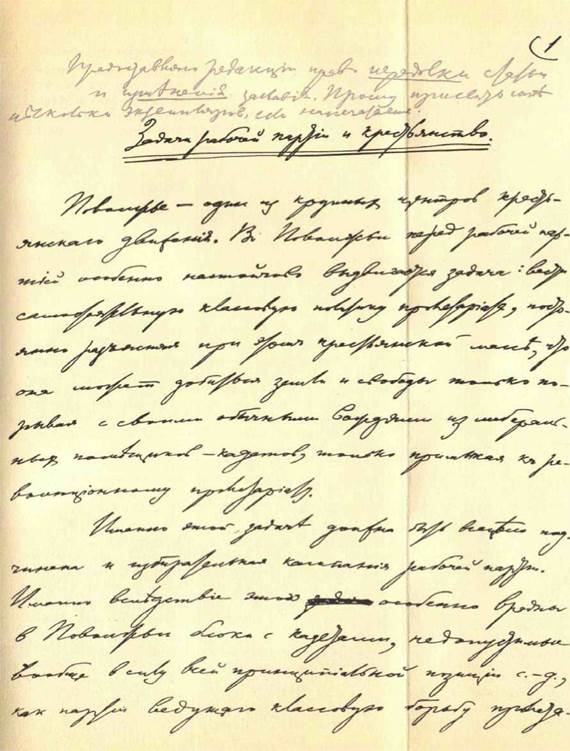 (1
Предоставляю редакции право переделки статьи
и изменения заглавия. Прошу прислать
несколько экземпляров, если напечатаете.
Задачи рабочей партіи и крестьянство.
Поволжье — один из крупных центров кресть-
янскаго движенія. Въ Поволжьи перед рабочей пар-
тіей особенно настойчиво выдвигается задача: вести
самостоятельную классовую политику пролетаріата, посто-
янно разъясняя при этом крестьянской массѣ, что
она может добиться земли и свободы только по-
рывая с своими обычными вождями из либераль-
ных помѣщиков-кадетов, только примыкая къ ре-
волюціонному пролетаріату.
Именно этой задачѣ должна быть всецѣло под-
чинена и избирательная кампанія рабочей партіи.
Именно вслѣдствіе этого особенно вредны
в Поволжьи блоки с кадетами, недопустимые
вообще в силу всей принципіальной позиціи с.-д.,
как партіи ведущей классовую борьбу пролета-